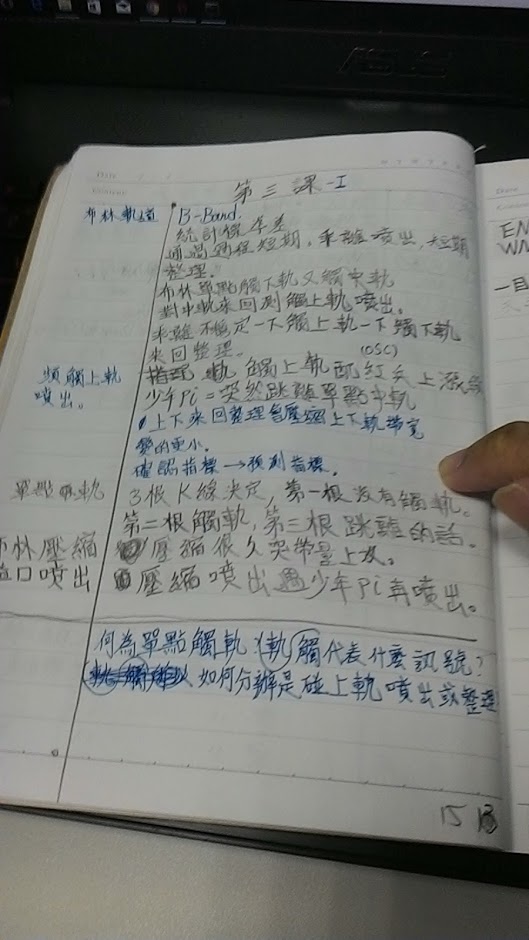 ASUS
第三課-I
布林軌道
B-Band.
統計標準差
通過過程短期,乖離噴出,短期
整理。
布林單點觸下軌又觸中軌
對中軌來回測觸上軌噴出。
乖離不穩定一下觸上軌一下觸下軌
來回整理。
(OSC)
頻觸上軌
噴出。
軌 觸上軌配紅色上漲
少年Pi=突然跳離單點中軌
上下來回整理會壓縮上下軌帶寬
變的更小。
確認指標→預測指標。
單點觸軌
3根K線決定,第一根沒有觸軌。
第二根觸軌,第三根跳離的話。
布林壓縮
壓縮很久突帶量上攻。
口噴出
壓縮噴出遇少年Pi再噴出。
何為單點觸軌?軌觸代表什麼訊號?
如何分辦是碰上軌噴出或整理
15
13
EN
WN
一目